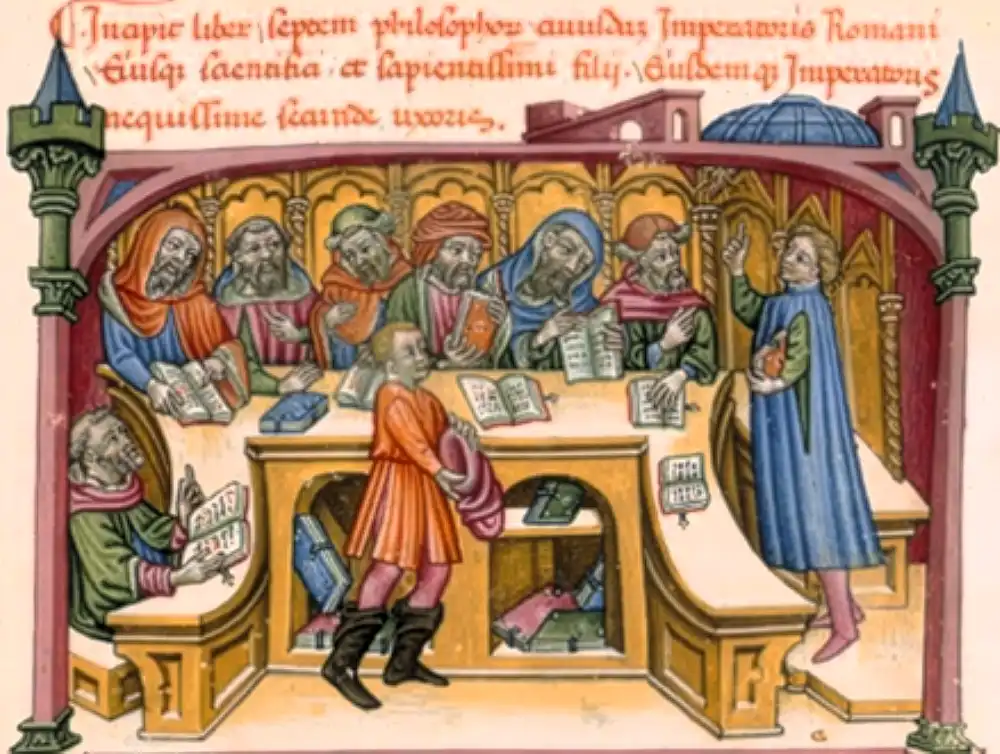 Incipit liber septem philosophorum cuiusdam Imperatoris Romani
Eiusque scientifici et sapientissimi filii. Eiusdemque Imperatoris
nequissime secunde uxoris.